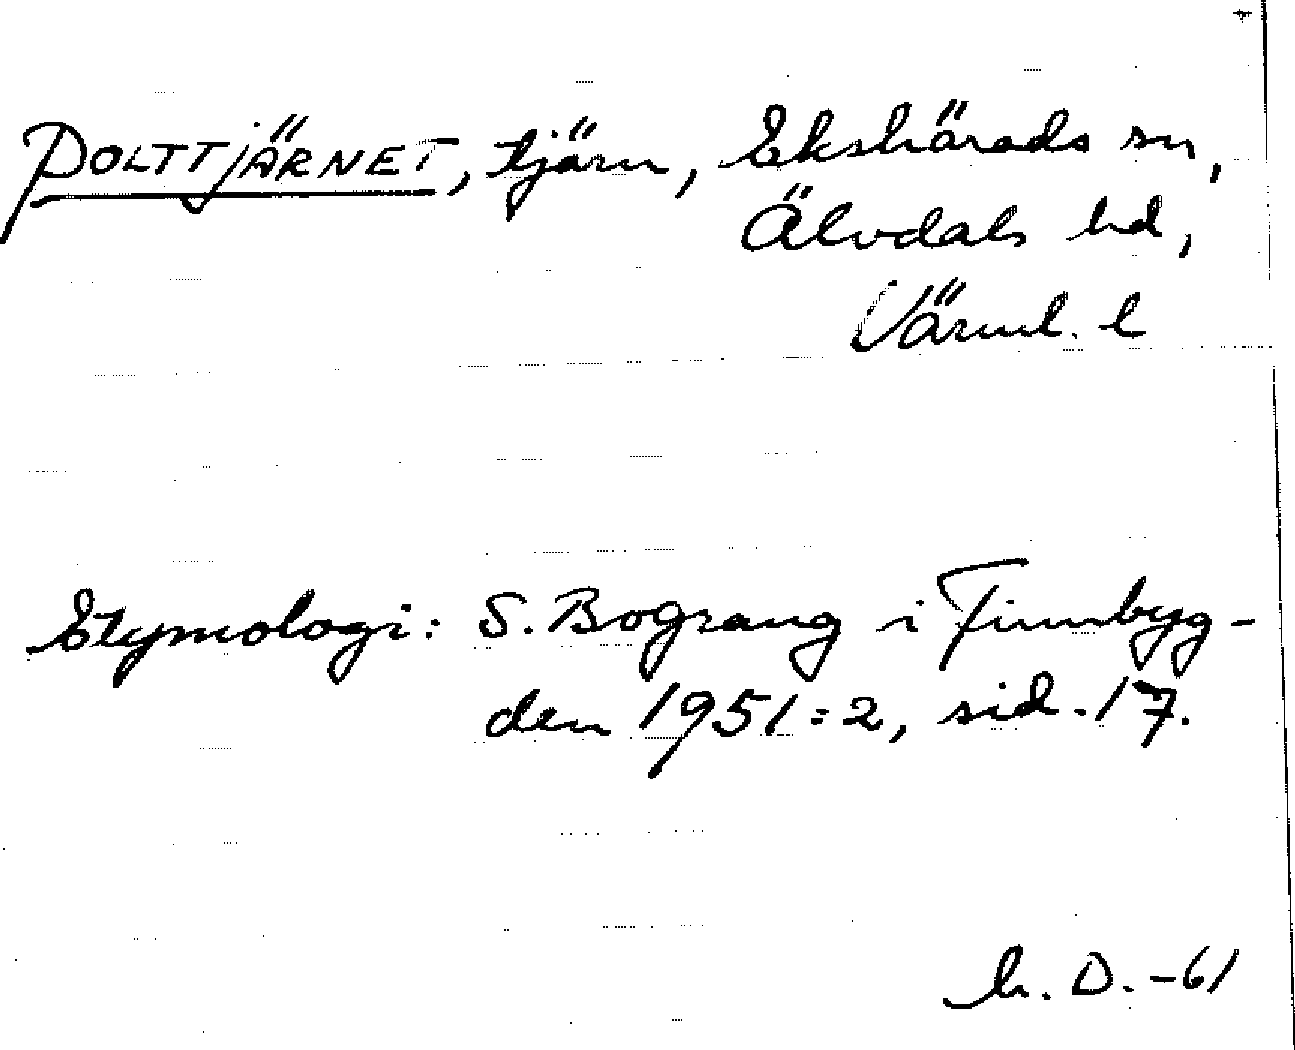 POLTTJÄRNET, tjärn, Ekshärads sn,
Älvdals hd,
Värml. l
Etymologi: S. Bograng i Finnbyg-
den 1951:2, sid. 17.
D. -61